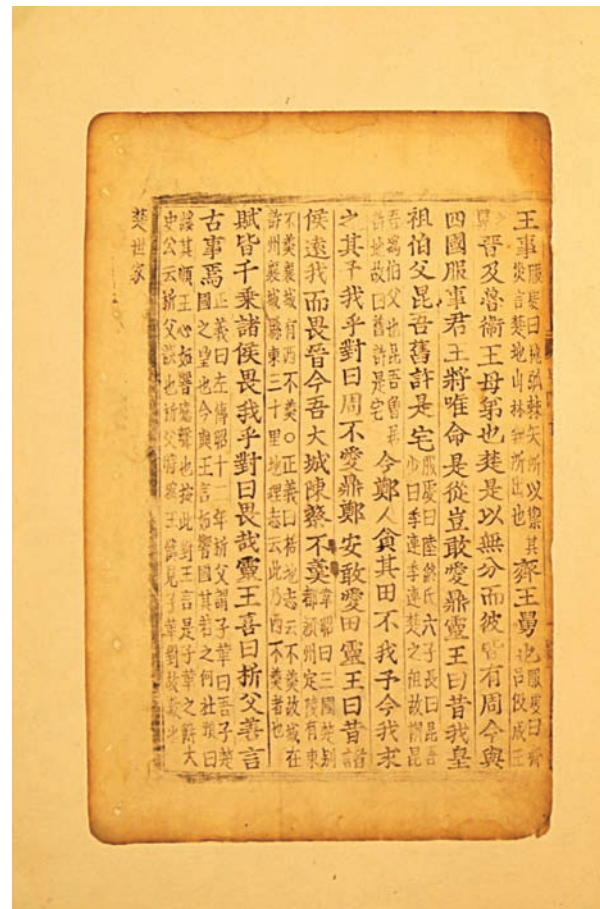 王事服虔曰桃弧棘矢所以禦其災言楚地山林無所出也齊王舅也服虔曰齊呂伋成王
之舅晉及魯衛王母弟也楚是以無分而彼皆有周今與
四國服事君王將唯命是從豈敢愛鼎靈王曰昔我皇
祖伯父昆吾舊許是宅服虔曰陸終氏六子長曰昆吾少曰季連季連楚之祖故謂昆
吾爲伯父也昆吾曾居許地故曰舊許是宅今鄭人貪其田不我予今我求
之其予我乎對曰周不愛鼎鄭安敢愛田靈王曰昔諸
侯遠我而畏晉今吾大城陳蔡不羹韋昭曰三國楚別都潁州定陵有東
不羹襄城有西不羹○正義曰括地志云不羹故城在許州襄城縣東三十里地理志云此乃西不羹者也
賦皆千乘諸侯畏我乎對曰畏哉靈王喜曰析父善言
古事焉正義曰左傳昭十二年析父謂子革曰吾子楚國之望也今與王言如響國其若之何杜預曰
譏其順王心如響應聲也按此對王言是子革之辭太史公云析父誤也析父時爲王僕見子革對故歎也
楚世家